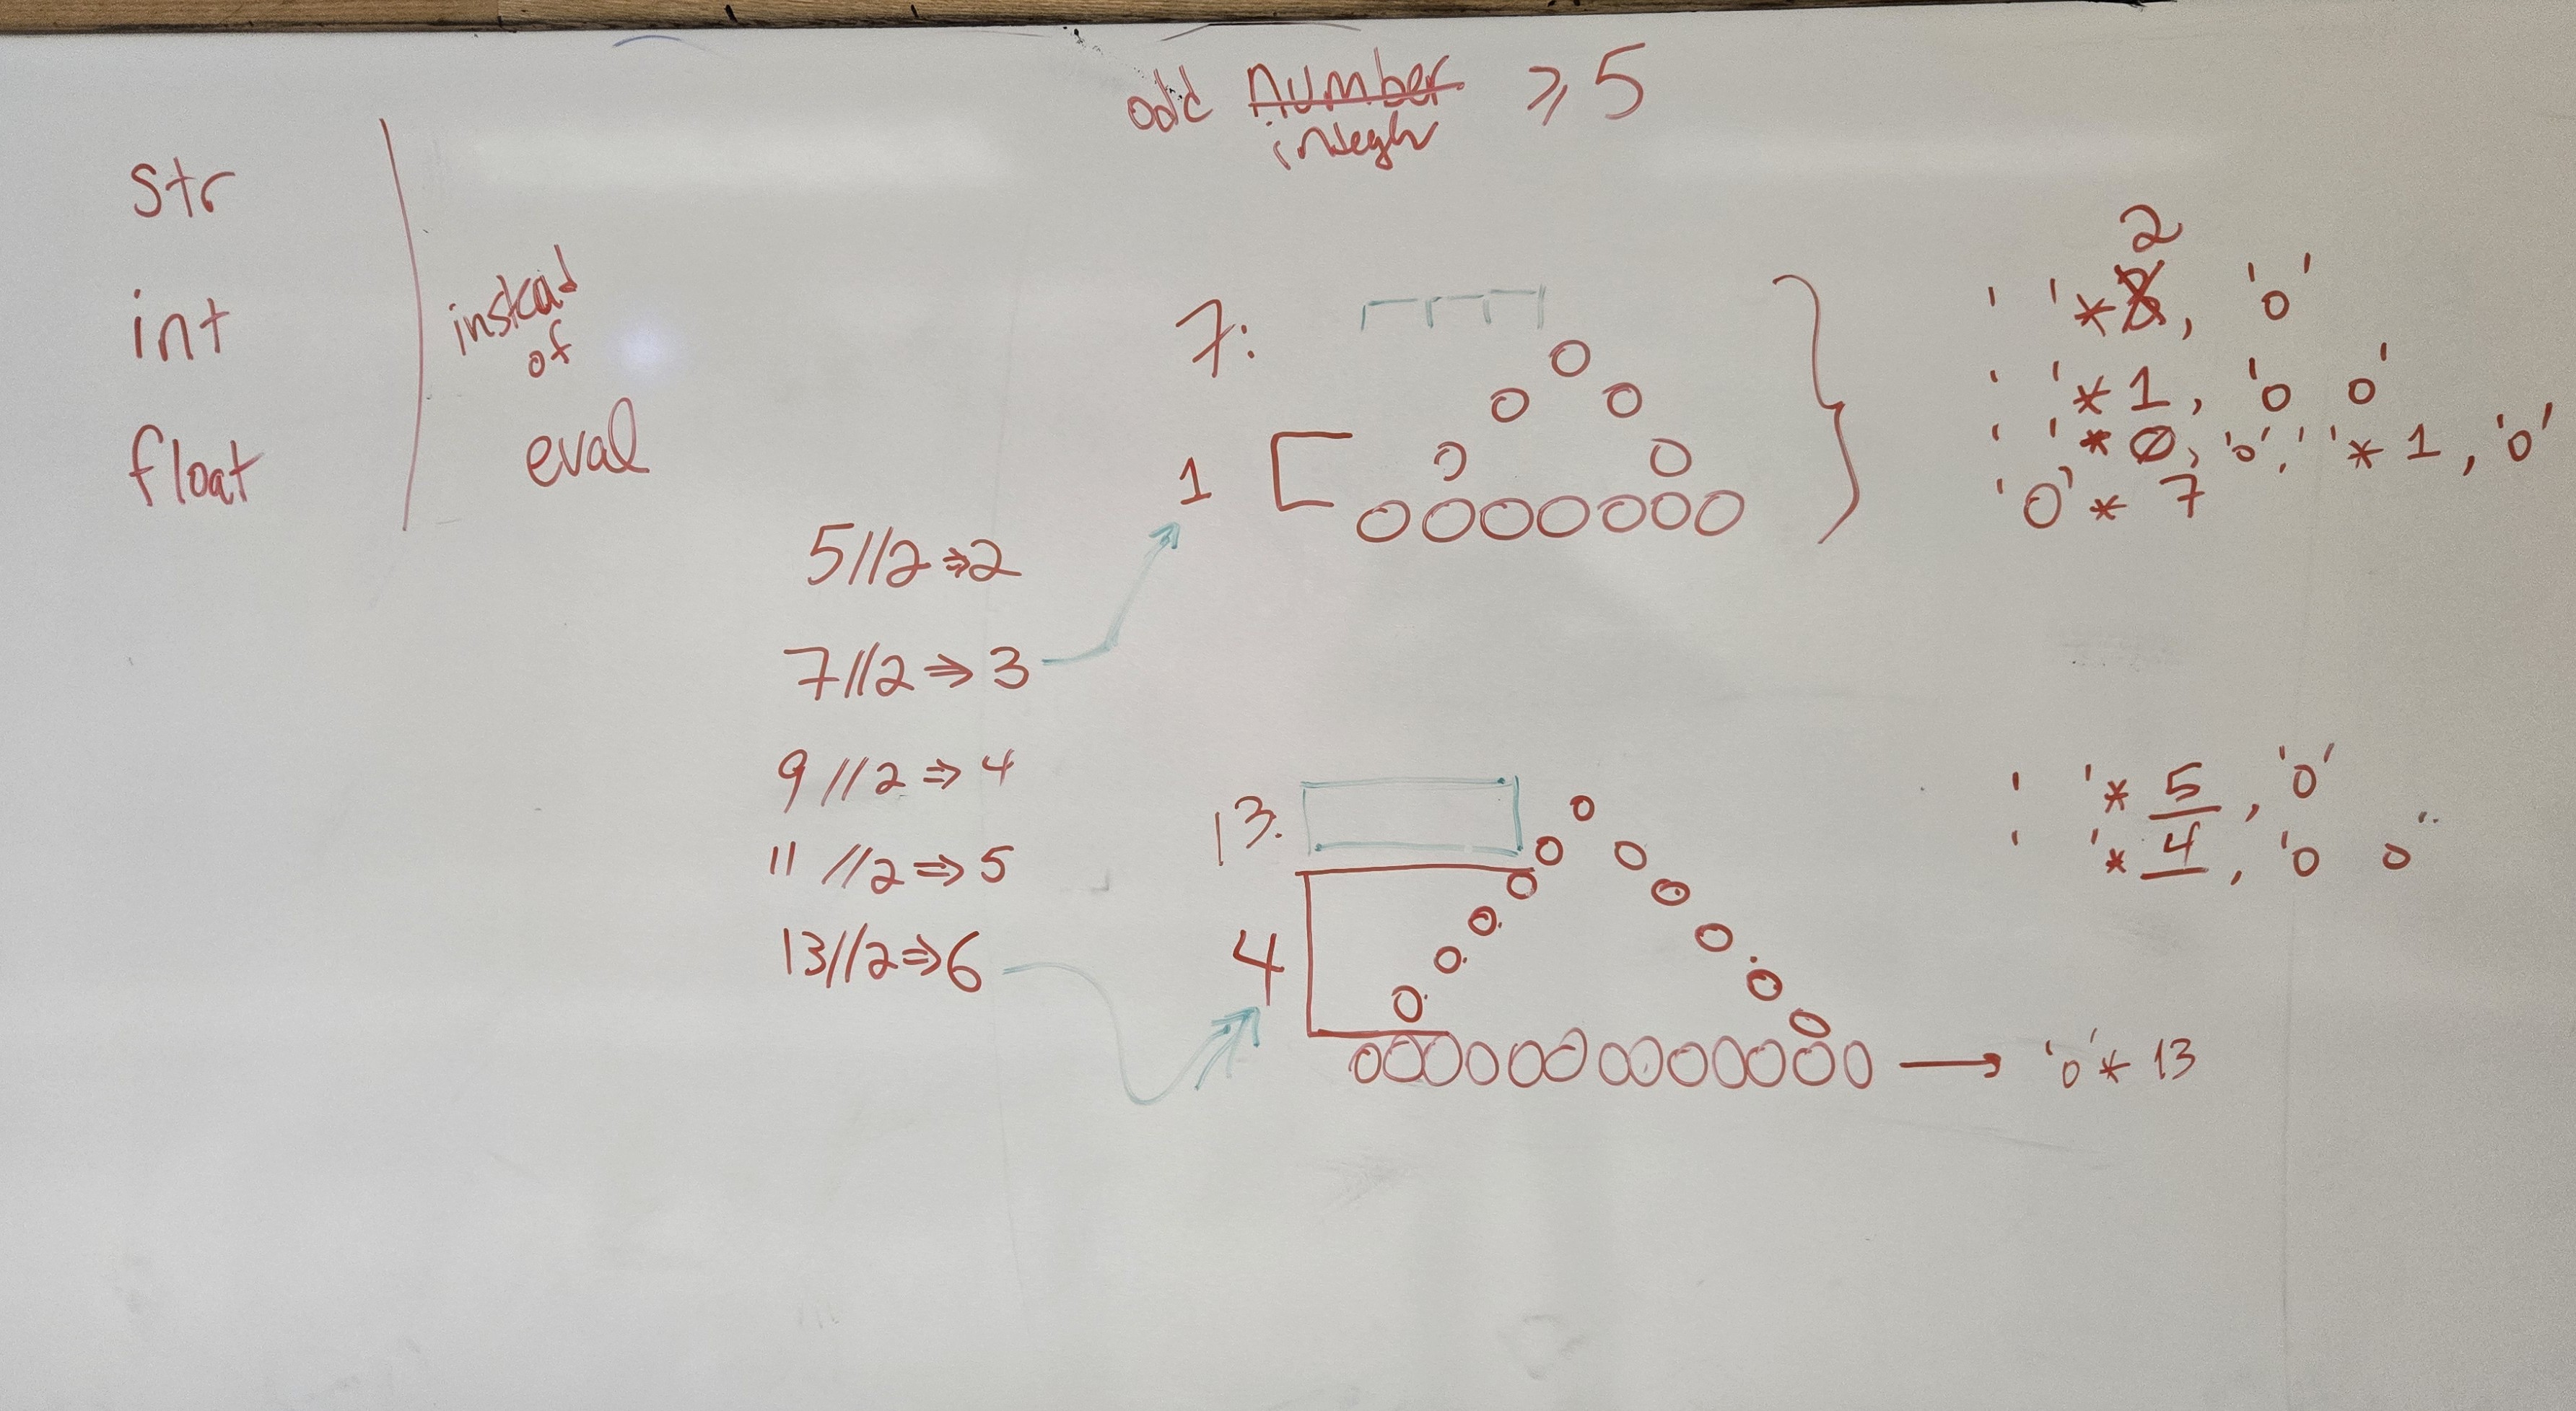 odd number ≥ 5
integer
str
int
float
instead
of
eval
5//2 ⇒ 2
7//2 ⇒ 3
9//2 ⇒ 4
11//2 ⇒ 5
13//2 ⇒ 6
7:
1
o
o o
o o
OOOOOOO
2
' ' * 3, 'o'
' ' * 1, 'o o'
' ' * 0, 'o', ' ' * 1, 'o'
'O' * 7
13:
4
o
o o
o o
o o
o o
o o
ooooooooooooo → 'o' * 13
' ' * 5, 'o'
' ' * 4, 'o o'